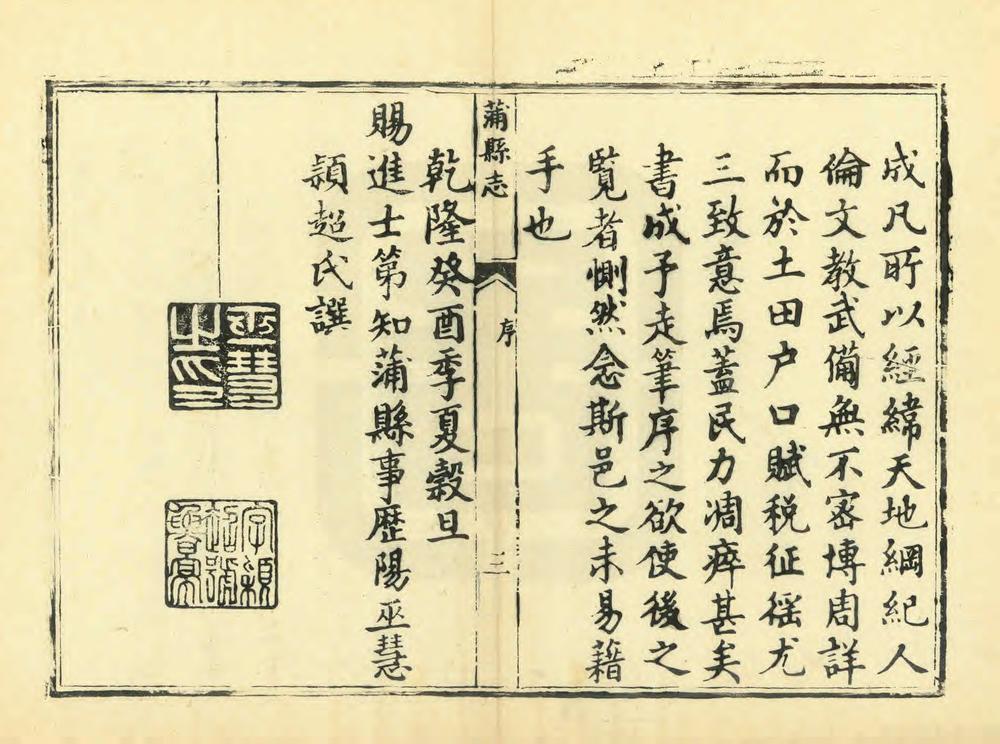 成凡所以經緯天地綱紀人
倫文教武備無不宻博周詳
而於土田户口賦税征徭尤
三致意焉蓋民力凋瘁甚矣
書成予走筆序之欲使後之
覽者惻然念斯邑之未易藉
手也
蒲縣志
序
三
乾隆癸酉季夏穀旦
賜進士第知蒲縣事歷陽巫慧
頴超氏譔
巫慧之印
字穎超號